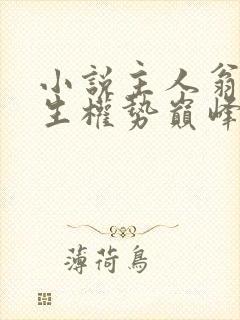 小說主人翁
生權勢巔峰
薄荷鳥